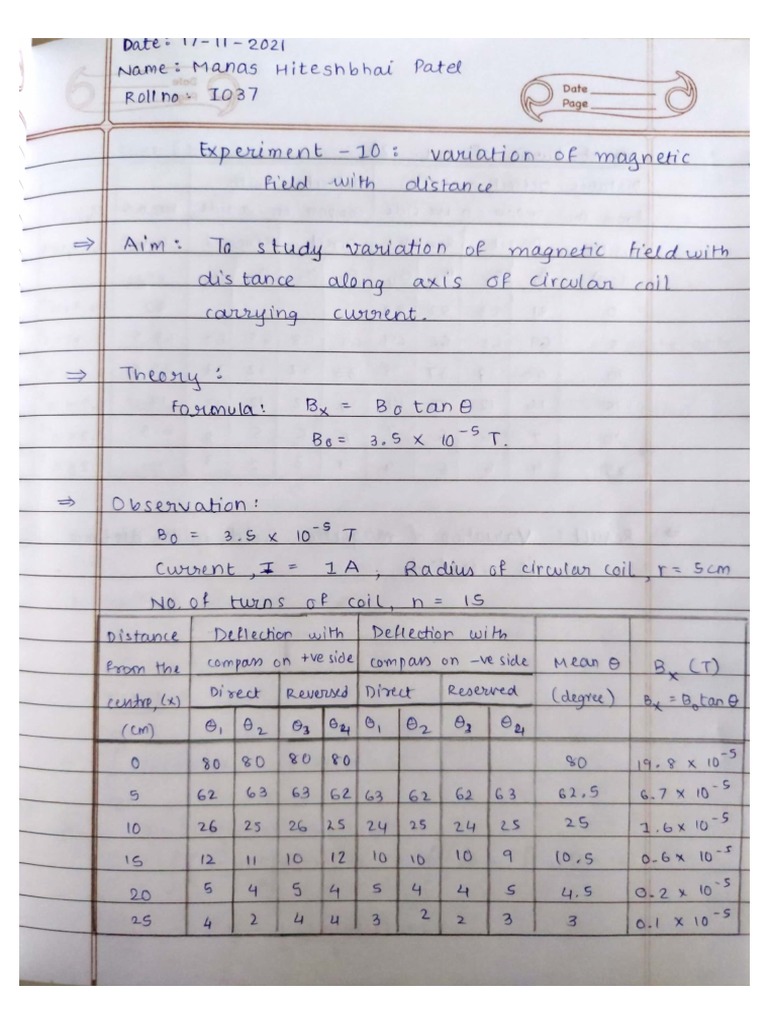 Date: 17-11-2021
Name: Manas Hiteshbhai Patel
Roll no: I037
Date
Page
Experiment - 10: variation of magnetic
field with distance
⇒ Aim: To study variation of magnetic field with
distance along axis of circular coil
carrying current.
⇒ Theory:
Formula: Bx = B0 tan θ
B0 = 3.5 × 10^-5 T.
⇒ Observation:
B0 = 3.5 × 10^-5 T
Current, I = 1 A, Radius of circular coil, r = 5cm
No. of turns of coil, n = 15
Distance from the centre, (x) (cm) | Deflection with compass on +ve side | Deflection with compass on -ve side | Mean θ (degree) | Bx (T) Bx = B0 tan θ
Direct | Reversed | Direct | Reserved
θ1 | θ2 | θ3 | θ4 | θ1 | θ2 | θ3 | θ4
0 | 80 | 80 | 80 | 80 | | | | | 80 | 19.8 × 10^-5
5 | 62 | 63 | 63 | 62 | 63 | 62 | 62 | 63 | 62.5 | 6.7 × 10^-5
10 | 26 | 25 | 26 | 25 | 24 | 25 | 24 | 25 | 25 | 1.6 × 10^-5
15 | 12 | 11 | 10 | 12 | 10 | 10 | 10 | 9 | 10.5 | 0.6 × 10^-5
20 | 5 | 4 | 5 | 4 | 5 | 4 | 4 | 5 | 4.5 | 0.2 × 10^-5
25 | 4 | 2 | 4 | 4 | 3 | 2 | 2 | 3 | 3 | 0.1 × 10^-5